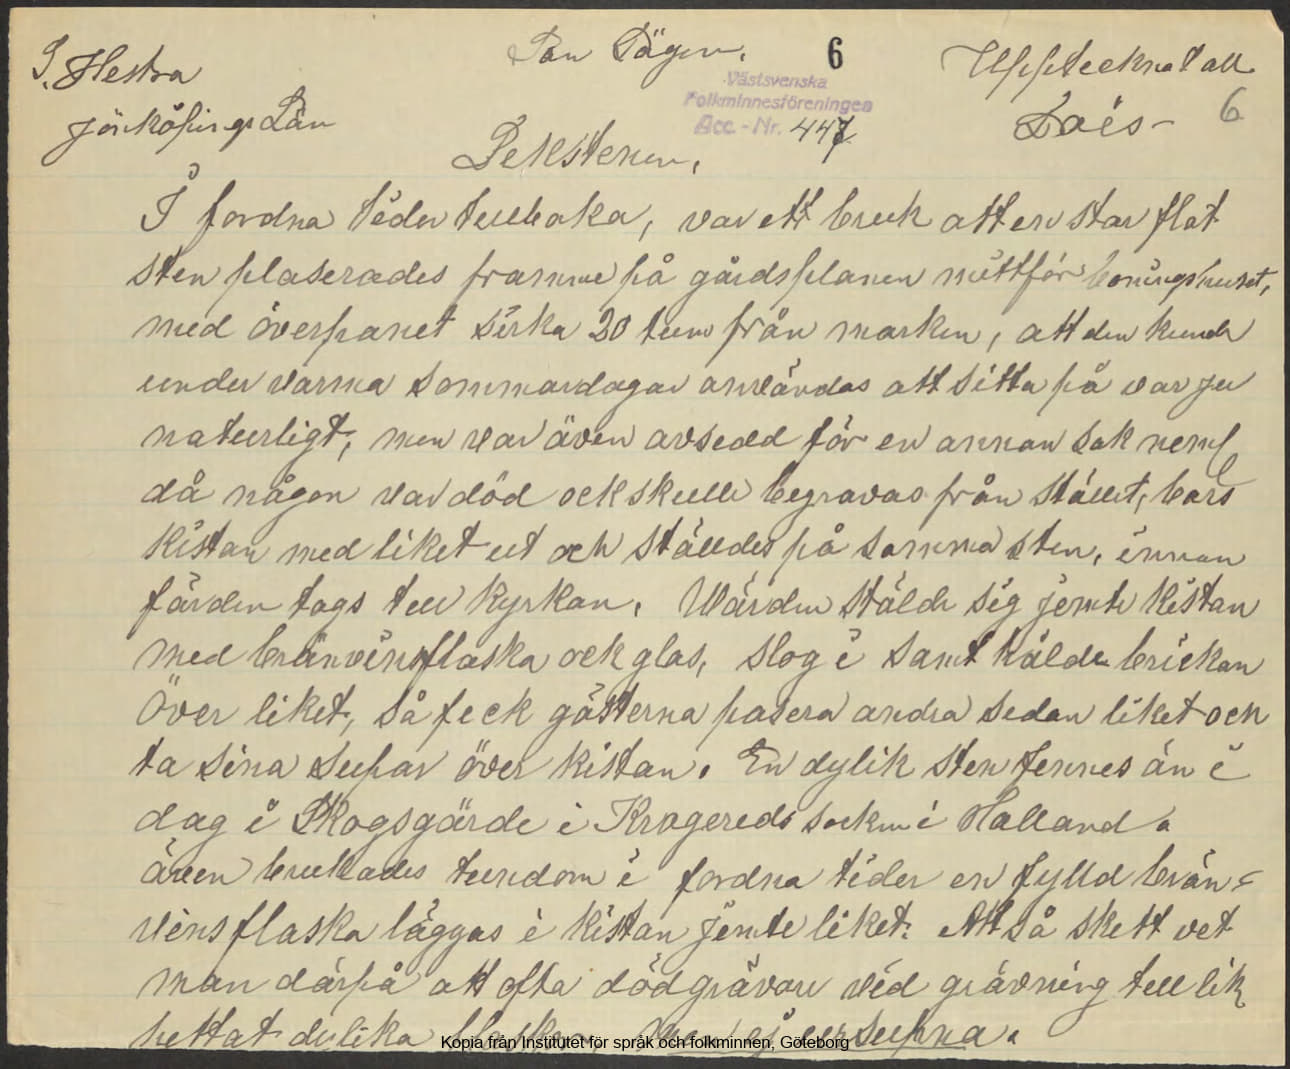 S. Hestra
Jönköpings Län
Pan Pägen.
6
Västsvenska
Folkminnesföreningen
Acc.-Nr. 447
Upptecknat av
6
Likstenen.
I fordna tider tillbaka, var ett bruk att en stor flat
sten plaserades framme på gårdsplanen mittför boningshuset,
med överpanet sirka 20 tum från marken, att den kunde
under varma sommardagar användas att sitta på var ju
naturligt, men var även avsedd för en annan sak neml
då någon var död ock skulle begravas från stället, bars
kistan med liket ut och ställdes på samma sten, innan
färden togs till kyrkan. Wärden stälde sig jemte kistan
med brännvinsflaska ock glas, slog i samt hälde brickan
över liket, så feck gästerna pasera andra sedan liket och
ta sina supar över kistan. En dylik sten fennes än i
dag i Skogsgärde i Krogereds socken i Halland.
även brukades tillika i fordna tider en fylld brän-
vinsflaska läggas i kistan jemte liket. Att så skett vet
man därpå att ofta dödgrävare vid grävning till lik
hettat dylika flaskor, men ej urdrupna.
Kopia från Institutet för språk och folkminnen, Göteborg